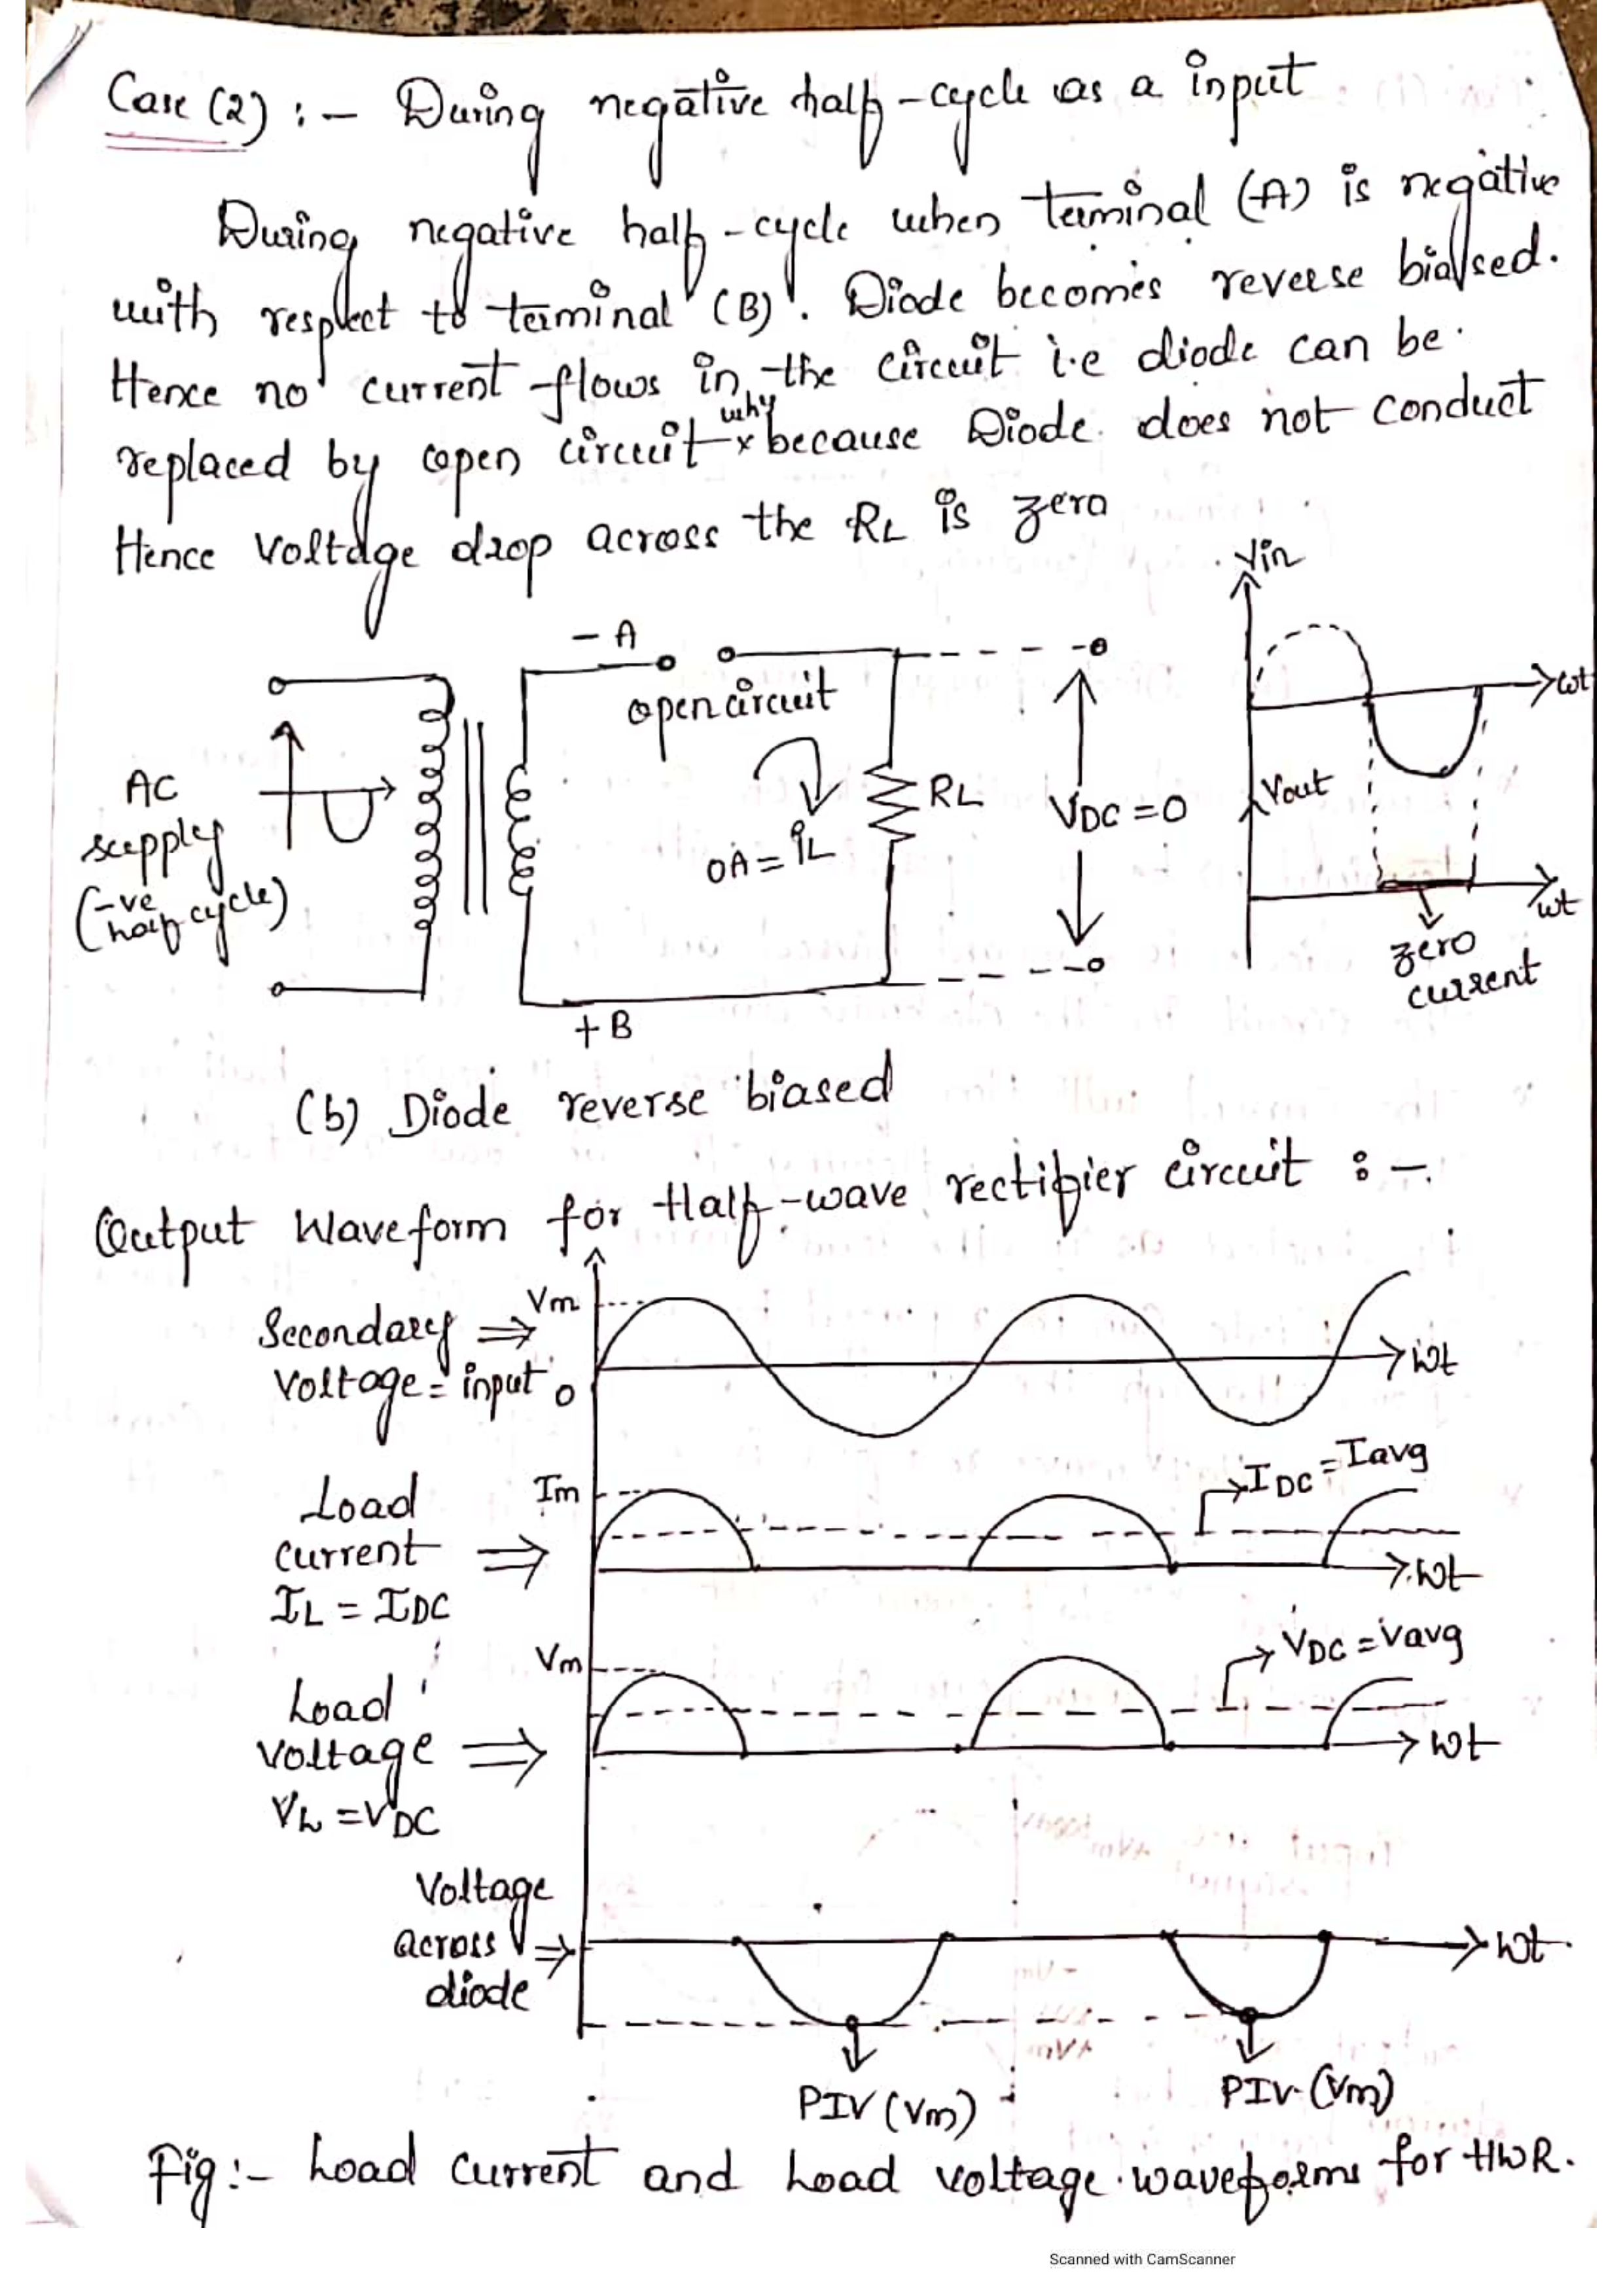 Case (2) :- During negative half-cycle as a input
During negative half-cycle when terminal (A) is negative
with respect to terminal (B). Diode becomes reverse biased.
Hence no current flows in the circuit i.e diode can be
why
replaced by open circuit x because Diode does not conduct
Hence Voltage drop across the RL is zero
Vin
- A
open circuit
ωt
AC
supply
(-ve
half cycle)
RL
VDC = 0
Vout
0A = iL
ωt
zero
current
+ B
(b) Diode reverse biased
Output Waveform for Half-wave rectifier circuit :-
Vm
Secondary ⇒
Voltage = input
0
ωt
IDC = Iavg
Im
Load
current ⇒
IL = IDC
ωt
VDC = Vavg
Vm
Load
Voltage ⇒
VL = VDC
ωt
Voltage
across ⇒
diode
ωt
PIV (Vm)
PIV (Vm)
Fig:- Load current and Load voltage waveforms for HWR.
Scanned with CamScanner